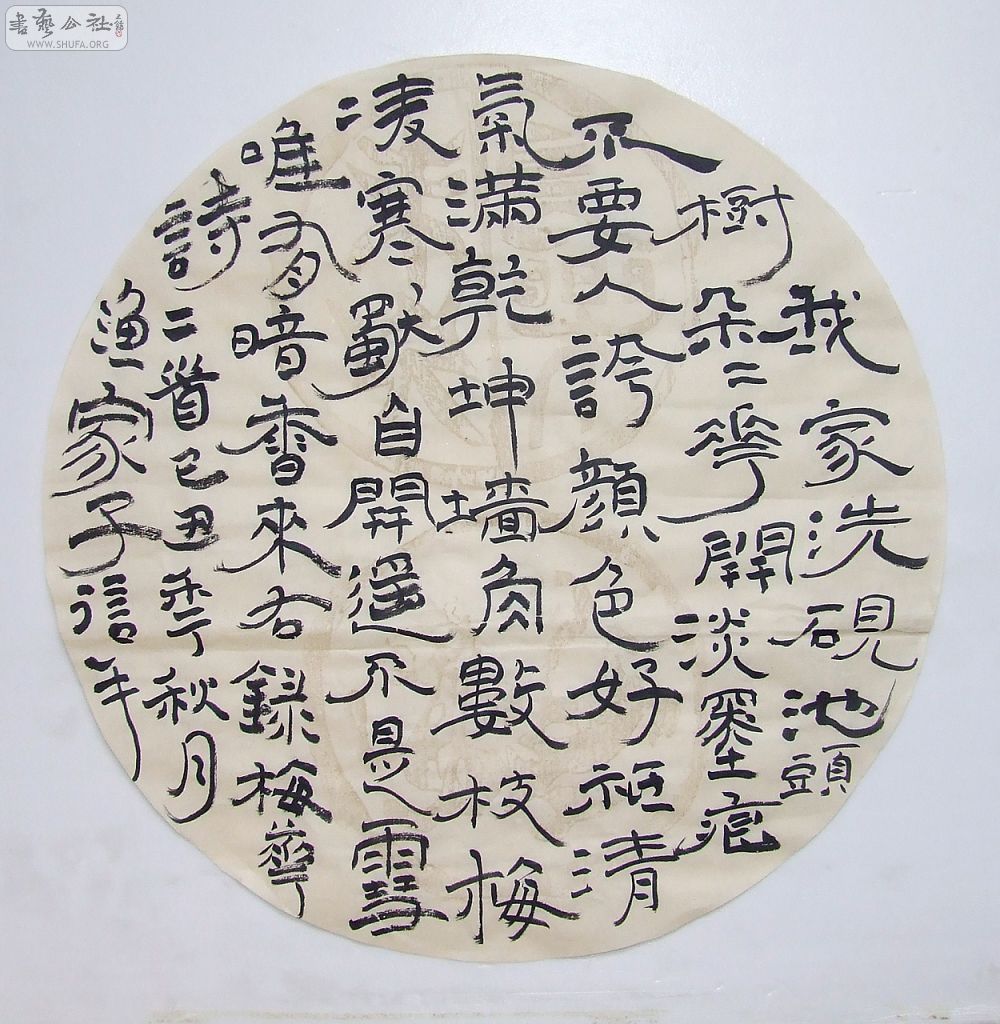 我家洗硯池頭
樹朵二花開淡墨痕
不要人誇顏色好祗清
氣滿乾坤墻角數枝梅
二凌寒獨自開遥不是雪
唯有暗香來右錄梅華
詩二首己丑季秋月
漁家子信年
書藝公社
WWW.SHUFA.ORG